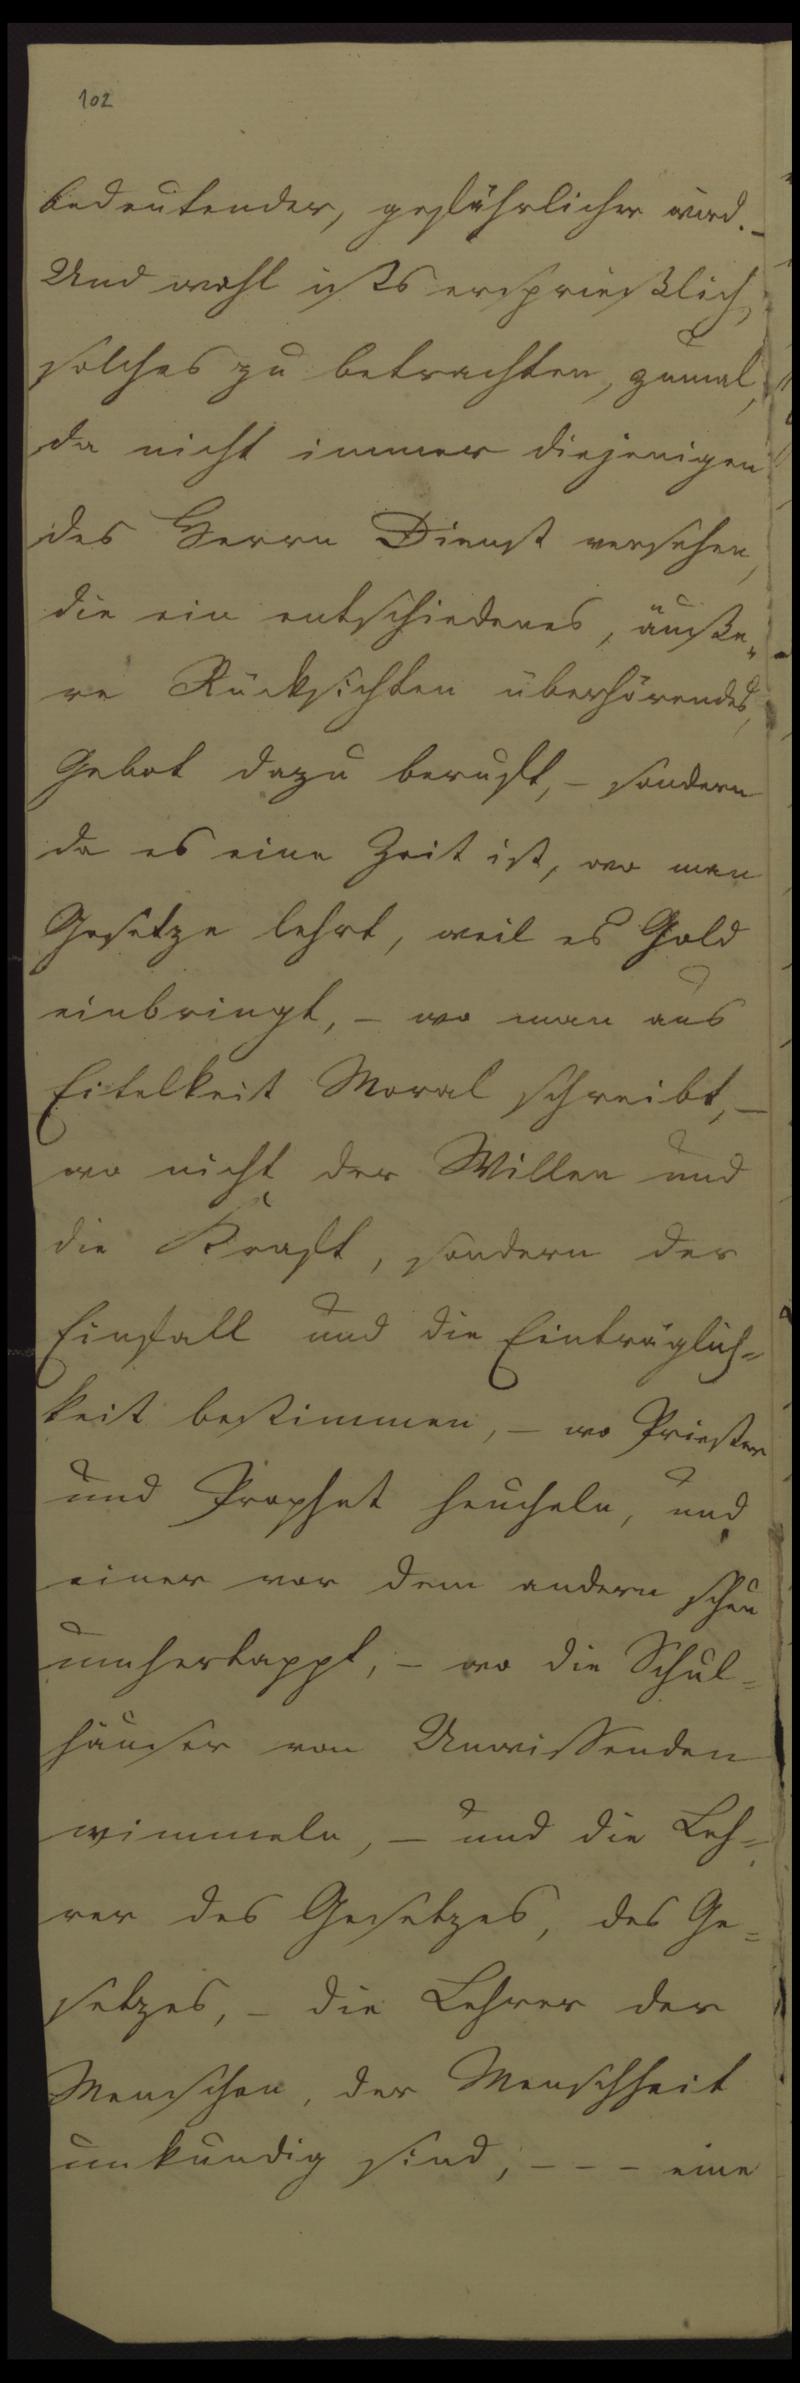 102
bedeutender, gefährlicher wird. –
Und wohl ists ersprießlich,
solches zu betrachten, zumal,
da nicht immer diejenigen
des Herrn Dienst versehen,
die ein entschiedenes, äuße„
re Rücksichten überhörendes,
Gebot dazu beruft, – sondern
da es eine Zeit ist, wo man
Gesetze lehrt, weil es Gold
einbringt, – wo man aus
Eitelkeit Moral schreibt, –
wo nicht der Willen und
die Kraft, sondern der
Einfall und die Einträglich=
keit bestimmen, – wo Priester
und Prophet heucheln, und
einer vor dem andern scheu
umhertappt, – wo die Schul=
häuser von Unwissenden
wimmeln, – und die Leh=
rer des Gesetzes, des Ge=
setzes, – die Lehrer der
Menschen, der Menschheit
unkundig sind, – – – eine